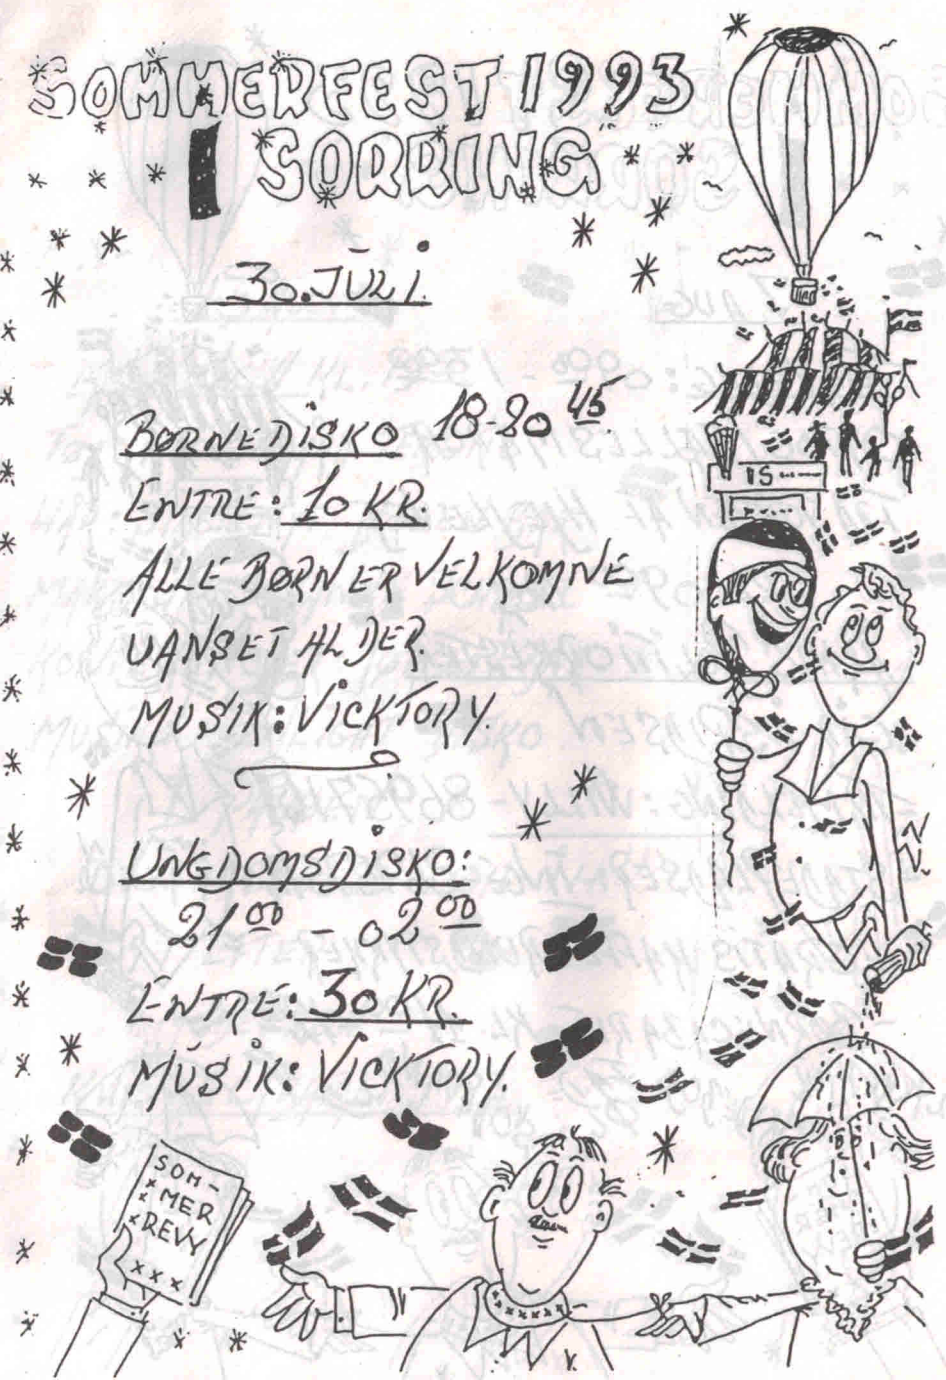 SOMMERFEST 1993
I SORRING
30. JULI.
BØRNEDISKO 18-20 45.
ENTRE: 10 KR.
ALLE BØRN ER VELKOMNE
UANSET ALDER.
MUSIK: VICKTORY.
UNGDOMSDISKO:
21 00 - 02 00
ENTRE: 30 KR.
MUSIK: VICKTORY.
IS
SOM-
MER
REVY